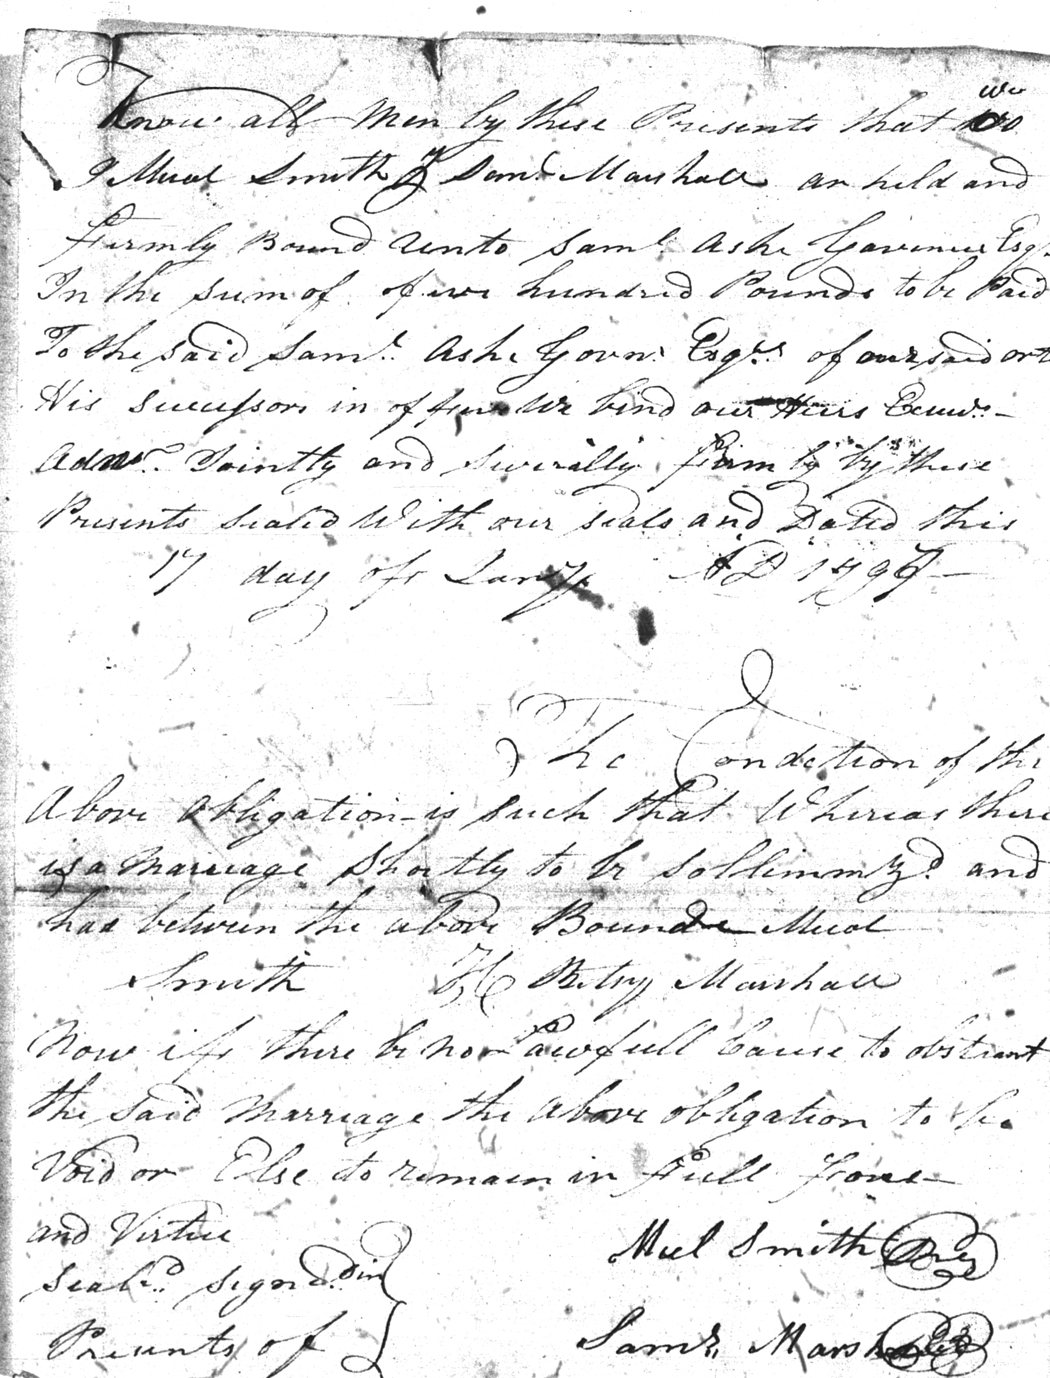 Know all Men by these Presents that we
I Mual Smith & Saml Marshall ar held and
firmly Bound unto Saml Ashe Governer Esqr
In the sum of five hundred Pounds to be Paid
To the said Saml Ashe Govnr Esqr of our said or to
His successors in office we bind our Heirs Exuers
Admrs Jointly and severally firmly by these
Presents sealed With our seals and Dated this
17 day of Jany AD 1797
The Condetion of the
Above obligation is such that Whereas there
is a Marriage Shortly to be sollimmzd and
had between the above Bound Mual
Smith & Betsy Marshall
Now if there be no Lawfull Cause to obstruct
the said Marriage the above obligation to be
Void or Else to remain in full force
and Virtue
Seald Signd in
Presents of
Mul Smith
Saml Marshall